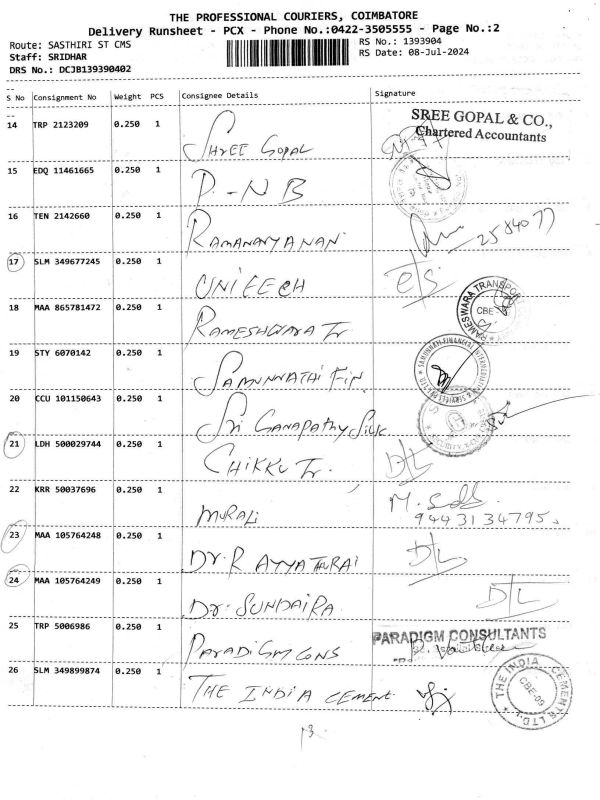 THE PROFESSIONAL COURIERS, COIMBATORE
Delivery Runsheet - PCX - Phone No.:0422-3505555 - Page No.:2
Route: SASTHIRI ST CMS
RS No.: 1393904
Staff: SRIDHAR
RS Date: 08-Jul-2024
DRS No.: DCJB139390402
S No Consignment No Weight PCS Consignee Details Signature
SREE GOPAL & CO.,
Chartered Accountants
14 TRP 2123209 0.250 1 SHREE GOPAL
15 EDQ 11461665 0.250 1 P-NB
16 TEN 2142660 0.250 1 RAMANARYANAN 2584077
17 SLM 349677245 0.250 1 UNITECH
18 MAA 865781472 0.250 1 RAMESHWARA Tr RAMESWARA TRANSPORT CBE
19 STY 6070142 0.250 1 SAMUNNATHI FIN
20 CCU 101150643 0.250 1 Sri GANAPATHY SILK
21 LDH 500029744 0.250 1 CHIKKU Tr. D/L
22 KRR 50037696 0.250 1 MURALI M.
9443134795
23 MAA 105764248 0.250 1 Dr. R AYYATHURAI D/L
24 MAA 105764249 0.250 1 Dr. SUNDAIRA D/L
25 TRP 5006986 0.250 1 PARADIGM CONS PARADIGM CONSULTANTS
26 SLM 349899874 0.250 1 THE INDIA CEMENT THE INDIA CEMENTS LTD. CBE-09
13